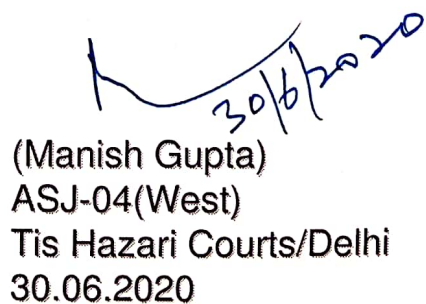 30/6/2020
(Manish Gupta)
ASJ-04(West)
Tis Hazari Courts/Delhi
30.06.2020